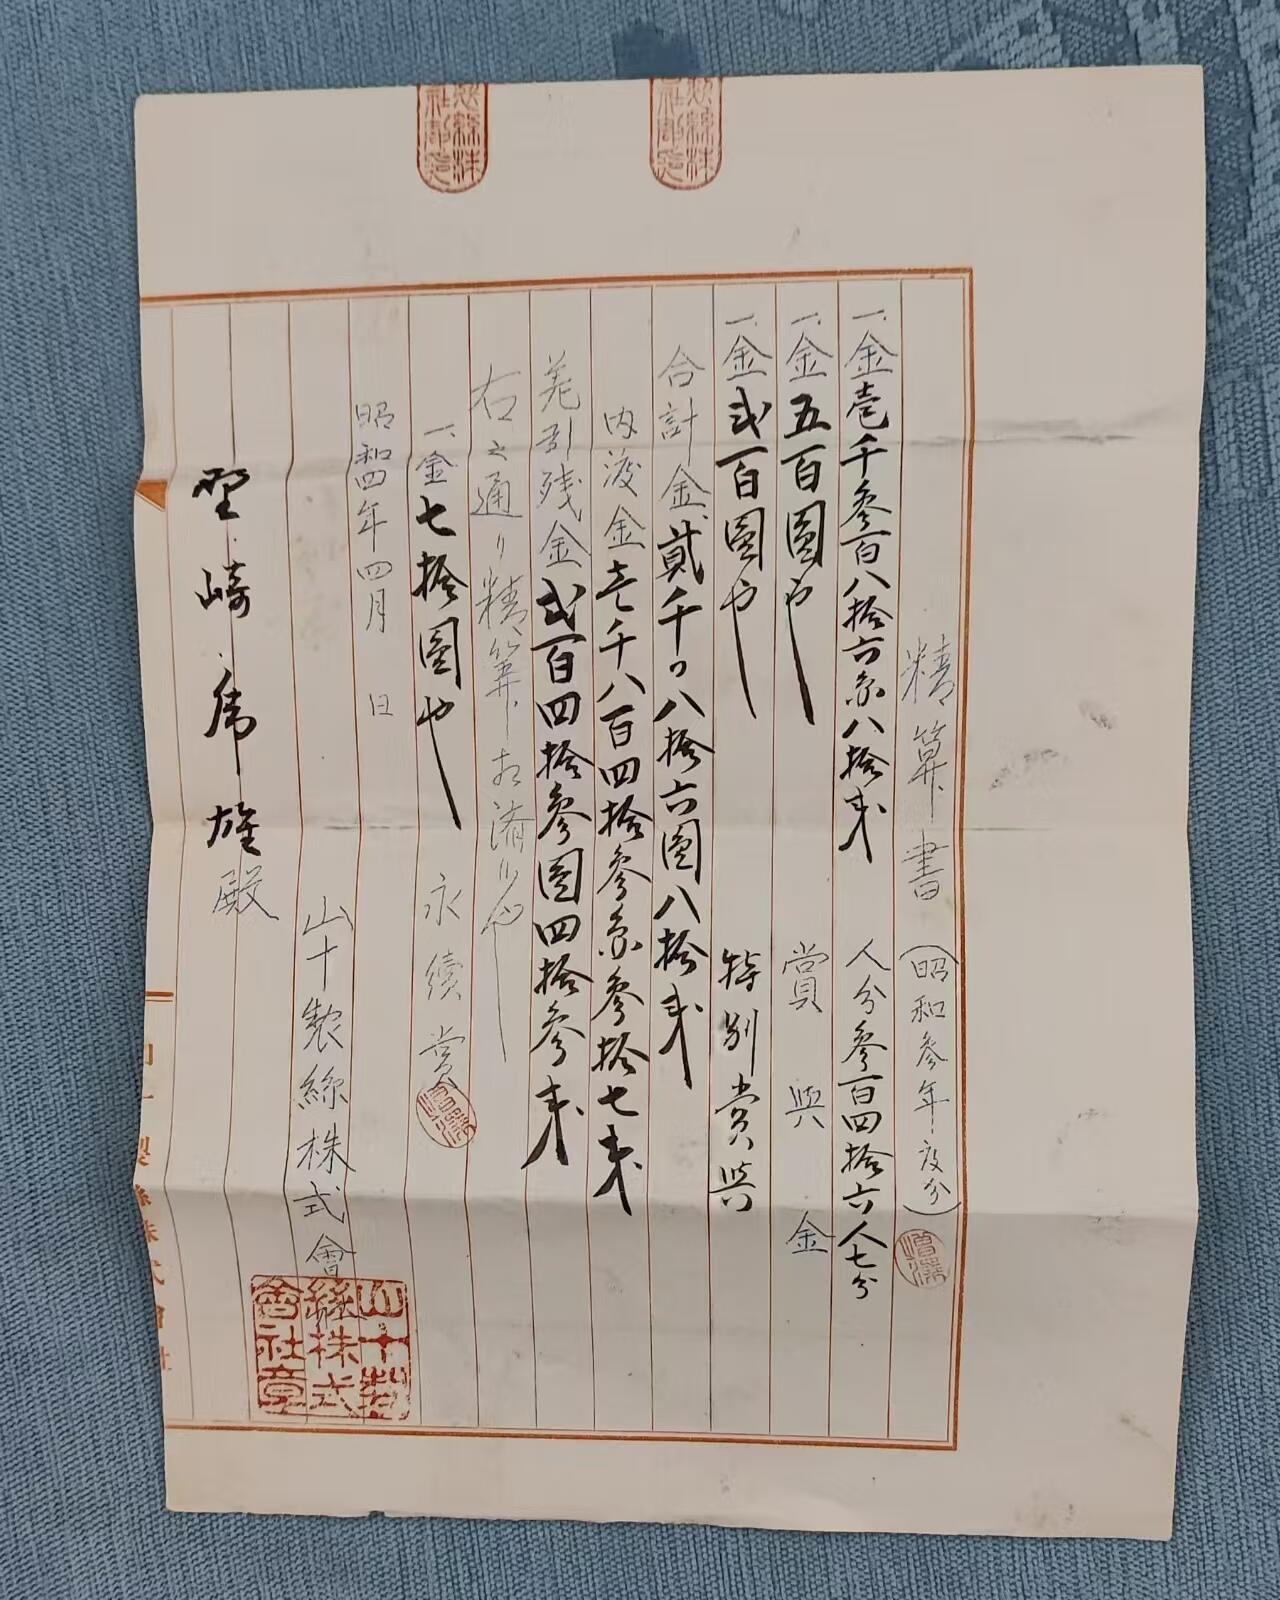 精算書(昭和参年度分)
一、金壱千参百八拾六円八拾銭 人分参百四拾六人七分
一、金五百圓也 賞與金
一、金弐百圓也 特別賞與
合計金貳千〇八拾六圓八拾銭
内渡金壱千八百四拾参円参拾七銭
差引残金弐百四拾参圓四拾参銭
右之通リ精算相済候也
一、金七拾圓也 永續賞
昭和四年四月 日
山十製絲株式會
野崎虎雄殿
山十製
絲株式
會社章
製絲株式會社